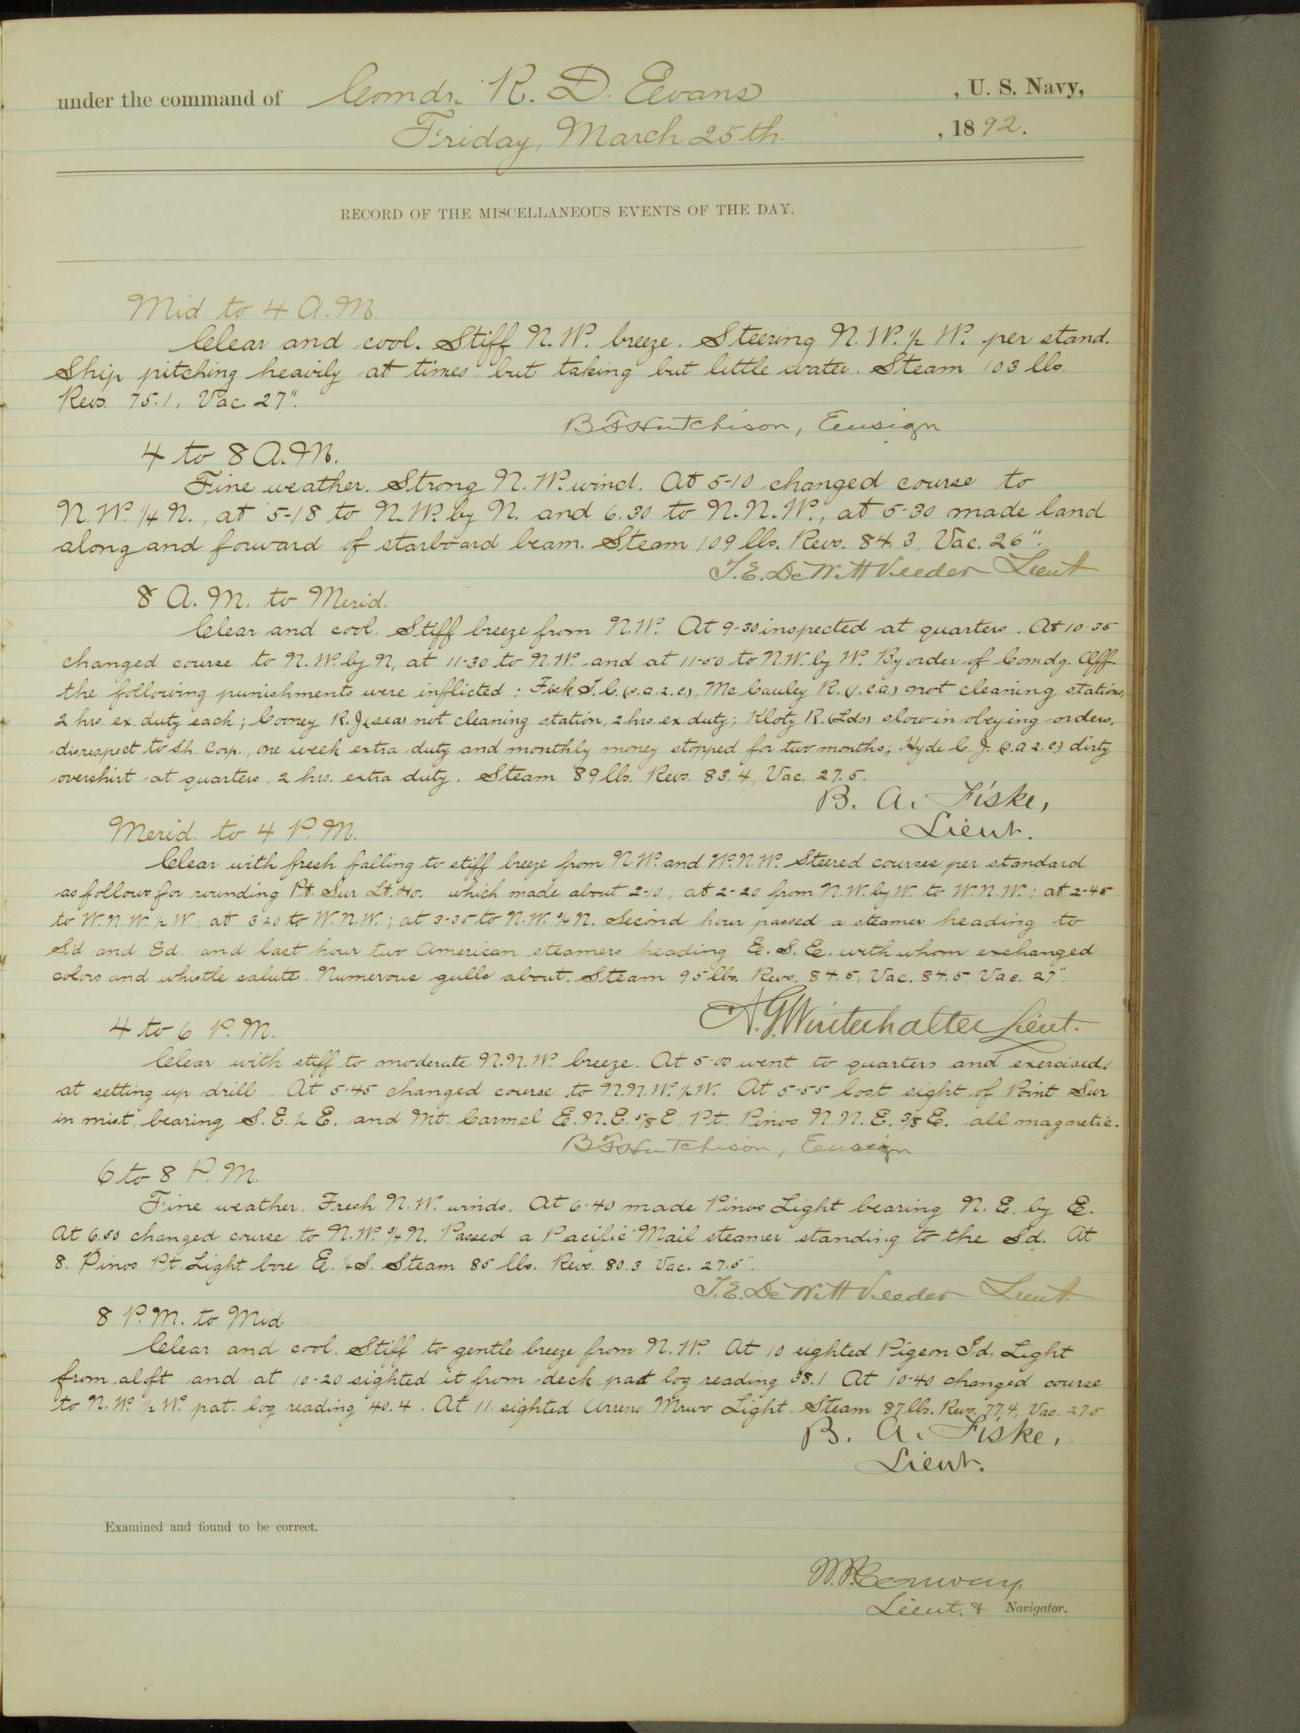 under the command of Comdr. R. D. Evans, U. S. Navy,
Friday, March 25th. , 1892.
RECORD OF THE MISCELLANEOUS EVENTS OF THE DAY.
Mid. to 4 A.M.
Clear and cool. Stiff N.W. breeze. Steering N.W. 1/2 W. per stand.
Ship pitching heavily at times but taking but little water. Steam 103 lbs.
Revs. 75.1, Vac. 27".
B F Hutchison, Ensign
4 to 8 A.M.
Fine weather. Strong N.W. wind. At 5-10 changed course to
N.W. 1/4 N., at 5-18 to N.W. by N. and 6.30 to N.N.W., at 5-30 made land
along and forward of starboard beam. Steam 109 lbs. Revs. 84.3 Vac. 26".
T.E. DeWitt Veeder Lieut
8 A.M. to Merid.
Clear and cool. Stiff breeze from N.W. At 9-30 inspected at quarters. At 10-35
changed course to N.W. by N, at 11-30 to N.W. and at 11-50 to N.W. by W. By order of Comdg. Off.
the following punishments were inflicted: Fisk (s.a.2.c), McCauley R. not cleaning station,
2 hrs. ex. duty each; Corney R.J. (sea) not cleaning station, 2 hrs. ex duty; Klotz R. (Lds) slow in obeying orders,
disrespect to Sh. Corp., one week extra duty and monthly money stopped for two months; Hyde C. J. (s.a 2.c) dirty
overshirt at quarters, 2 hrs. extra duty. Steam 89 lbs. Revs. 83.4, Vac. 27.5.
B. A. Fiske,
Lieut.
Merid. to 4 P.M.
Clear with fresh falling to stiff breeze from N.W. and W.N.W. Steered courses per standard
as follows for rounding Pt. Sur Lt. Ho. which made about 2-10; at 2-20 from N.W. by W. to W.N.W.; at 2-45
to W.N.W. 1/2 W, at 3-20 to W.N.W.; at 3-35 to N.W. 3/4 N. Second hour passed a steamer heading to
Sd and Ed. and last hour two American steamers heading E.S.E. with whom exchanged
colors and whistle salute. Numerous gulls about. Steam 95 lbs. Revs. 84.5, Vac. 84.5, Vac. 27".
A.G. Winterhalter Lieut.
4 to 6 P.M.
Clear with stiff to moderate N.N.W. breeze. At 5-00 went to quarters and exercised
at setting up drill. At 5-45 changed course to N.N.W. 1/2 W. At 5-55 lost sight of Point Sur
in mist, bearing S.E. 1/2 E. and Mt. Carmel E.N.E. 5/8 E. Pt. Pinos N.N.E. 3/8 E. all magnetic.
B F Hutchison, Ensign
6 to 8 P.M.
Fine weather. Fresh N.W. winds. At 6-40 made Pinos Light bearing N.E. by E.
At 6.50 changed course to N.W. 3/4 N. Passed a Pacific Mail steamer standing to the Sd. At
8. Pinos Pt. Light bore E. 1/2 S. Steam 85 lbs. Revs. 80.3 Vac. 27.5".
T.E. DeWitt Veeder Lieut.
8 P.M. to Mid
Clear and cool. Stiff to gentle breeze from N.W. At 10 sighted Pigeon Id. Light
from aloft and at 10-20 sighted it from deck pat log reading 38.1 At 10-40 changed course
to N.W. 1/2 W. pat. log reading 40.4. At 11 sighted Light. Steam 87 lbs. Revs. 77.4, Vac. 27.5
B. A. Fiske,
Lieut.
Examined and found to be correct.
Conway
Lieut. & Navigator.